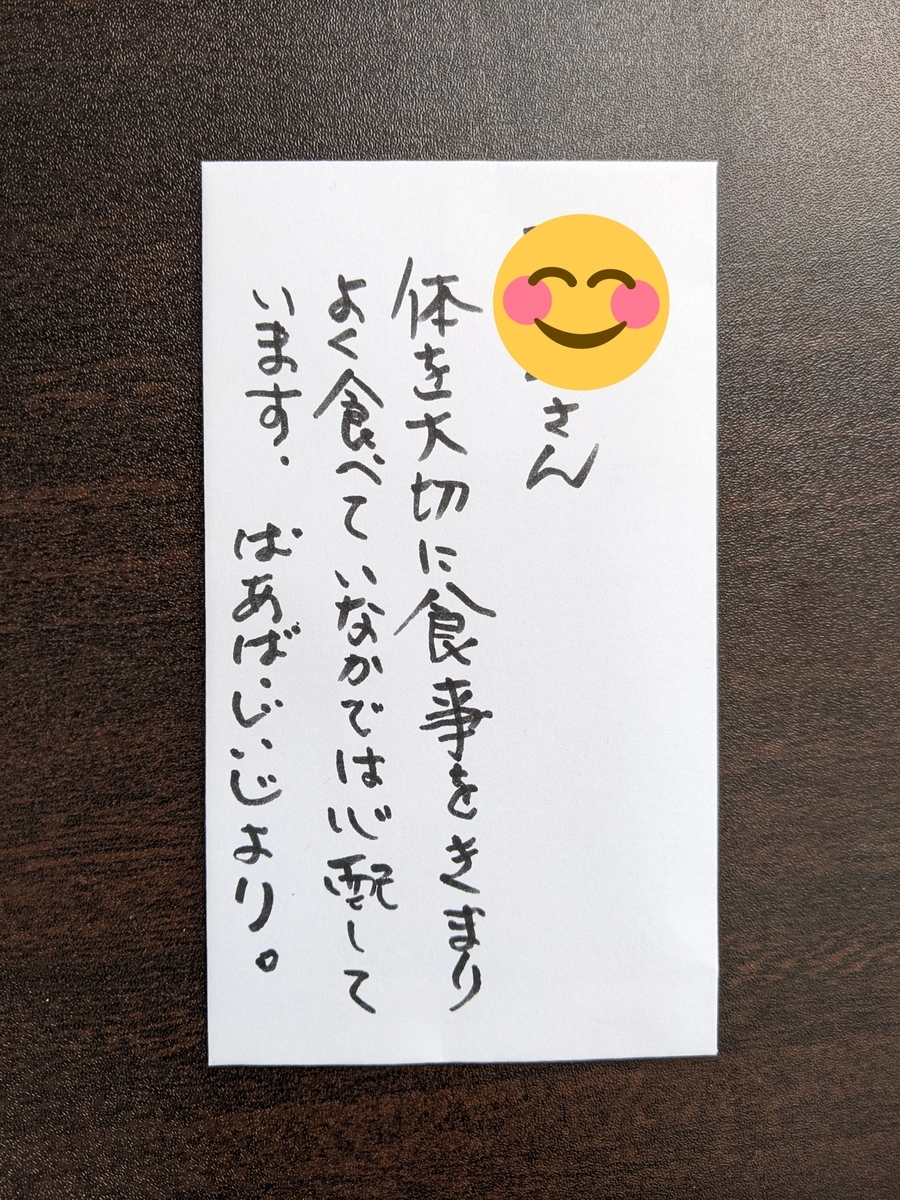 さん
体を大切に食事をきまり
よく食べていなかでは心配して
います. ばあば.じいじより。